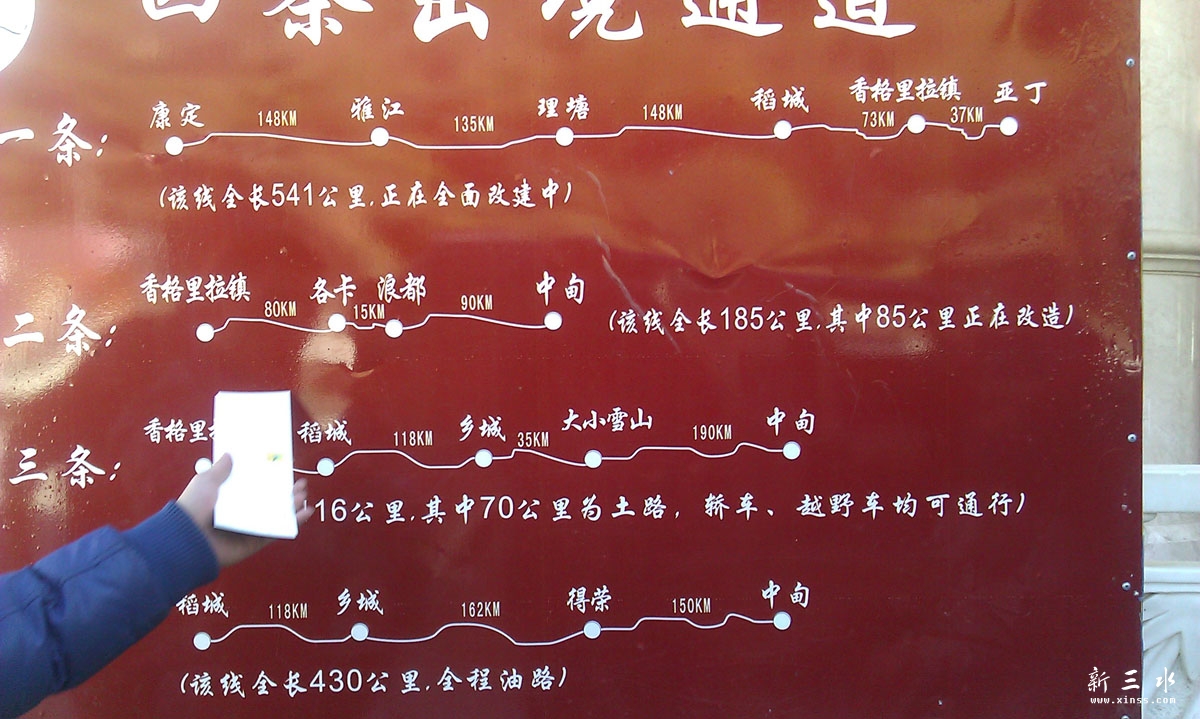 四条出境通道
一条:
康定 148KM 雅江 135KM 理塘 148KM 稻城 73KM 香格里拉镇 37KM 亚丁
(该线全长541公里,正在全面改建中)
二条:
香格里拉镇 80KM 各卡 15KM 浪都 90KM 中甸
(该线全长185公里,其中85公里正在改造)
三条:
香格里 稻城 118KM 乡城 35KM 大小雪山 190KM 中甸
16公里,其中70公里为土路, 轿车、越野车均可通行)
稻城 118KM 乡城 162KM 得荣 150KM 中甸
(该线全长430公里,全程油路)
新三水
www.xinss.com